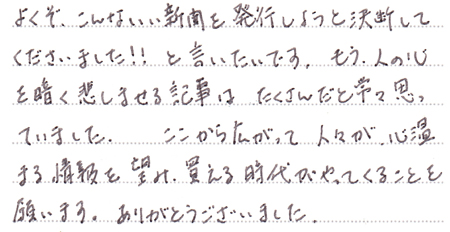 よくぞ、こんないい新聞を発行しようと決断して
くださいました!! と言いたいです。もう、人の心
を暗く悲しませる記事は たくさんだと常々思っ
ていました。 ここから広がって 人々が、心温
まる情報を望み、買える時代がやってくることを
願います。ありがとうございました。